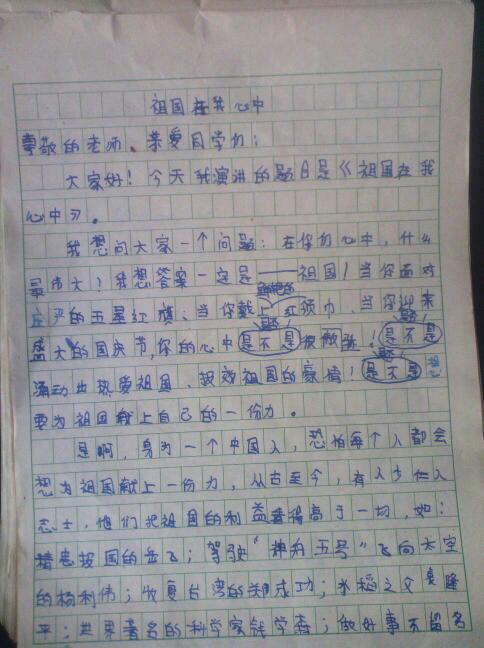 祖国在我心中
尊敬的老师、亲爱同学们：
大家好！今天我演讲的题目是《祖国在我
心中》。
我想问大家一个问题：在你们心中，什么
最伟大？我想答案一定是——祖国！当你面对
庄严的五星红旗、当你戴上红领巾、当你迎来
盛大的国庆节，你的心中是不是被激！是不是
涌动出热爱祖国、报效祖国的豪情！是不是想
要为祖国献上自己的一份力。
是啊，身为一个中国人，恐怕每个人都会
想为祖国献上一份力，从古至今，有多少仁人
志士，他们把祖国的利益看得高于一切，如：
精忠报国的岳飞；驾驶“神舟五号”飞向太空
的杨利伟；收复台湾的郑成功；水稻之父袁隆
平；世界著名的科学家钱学森；做好事不留名